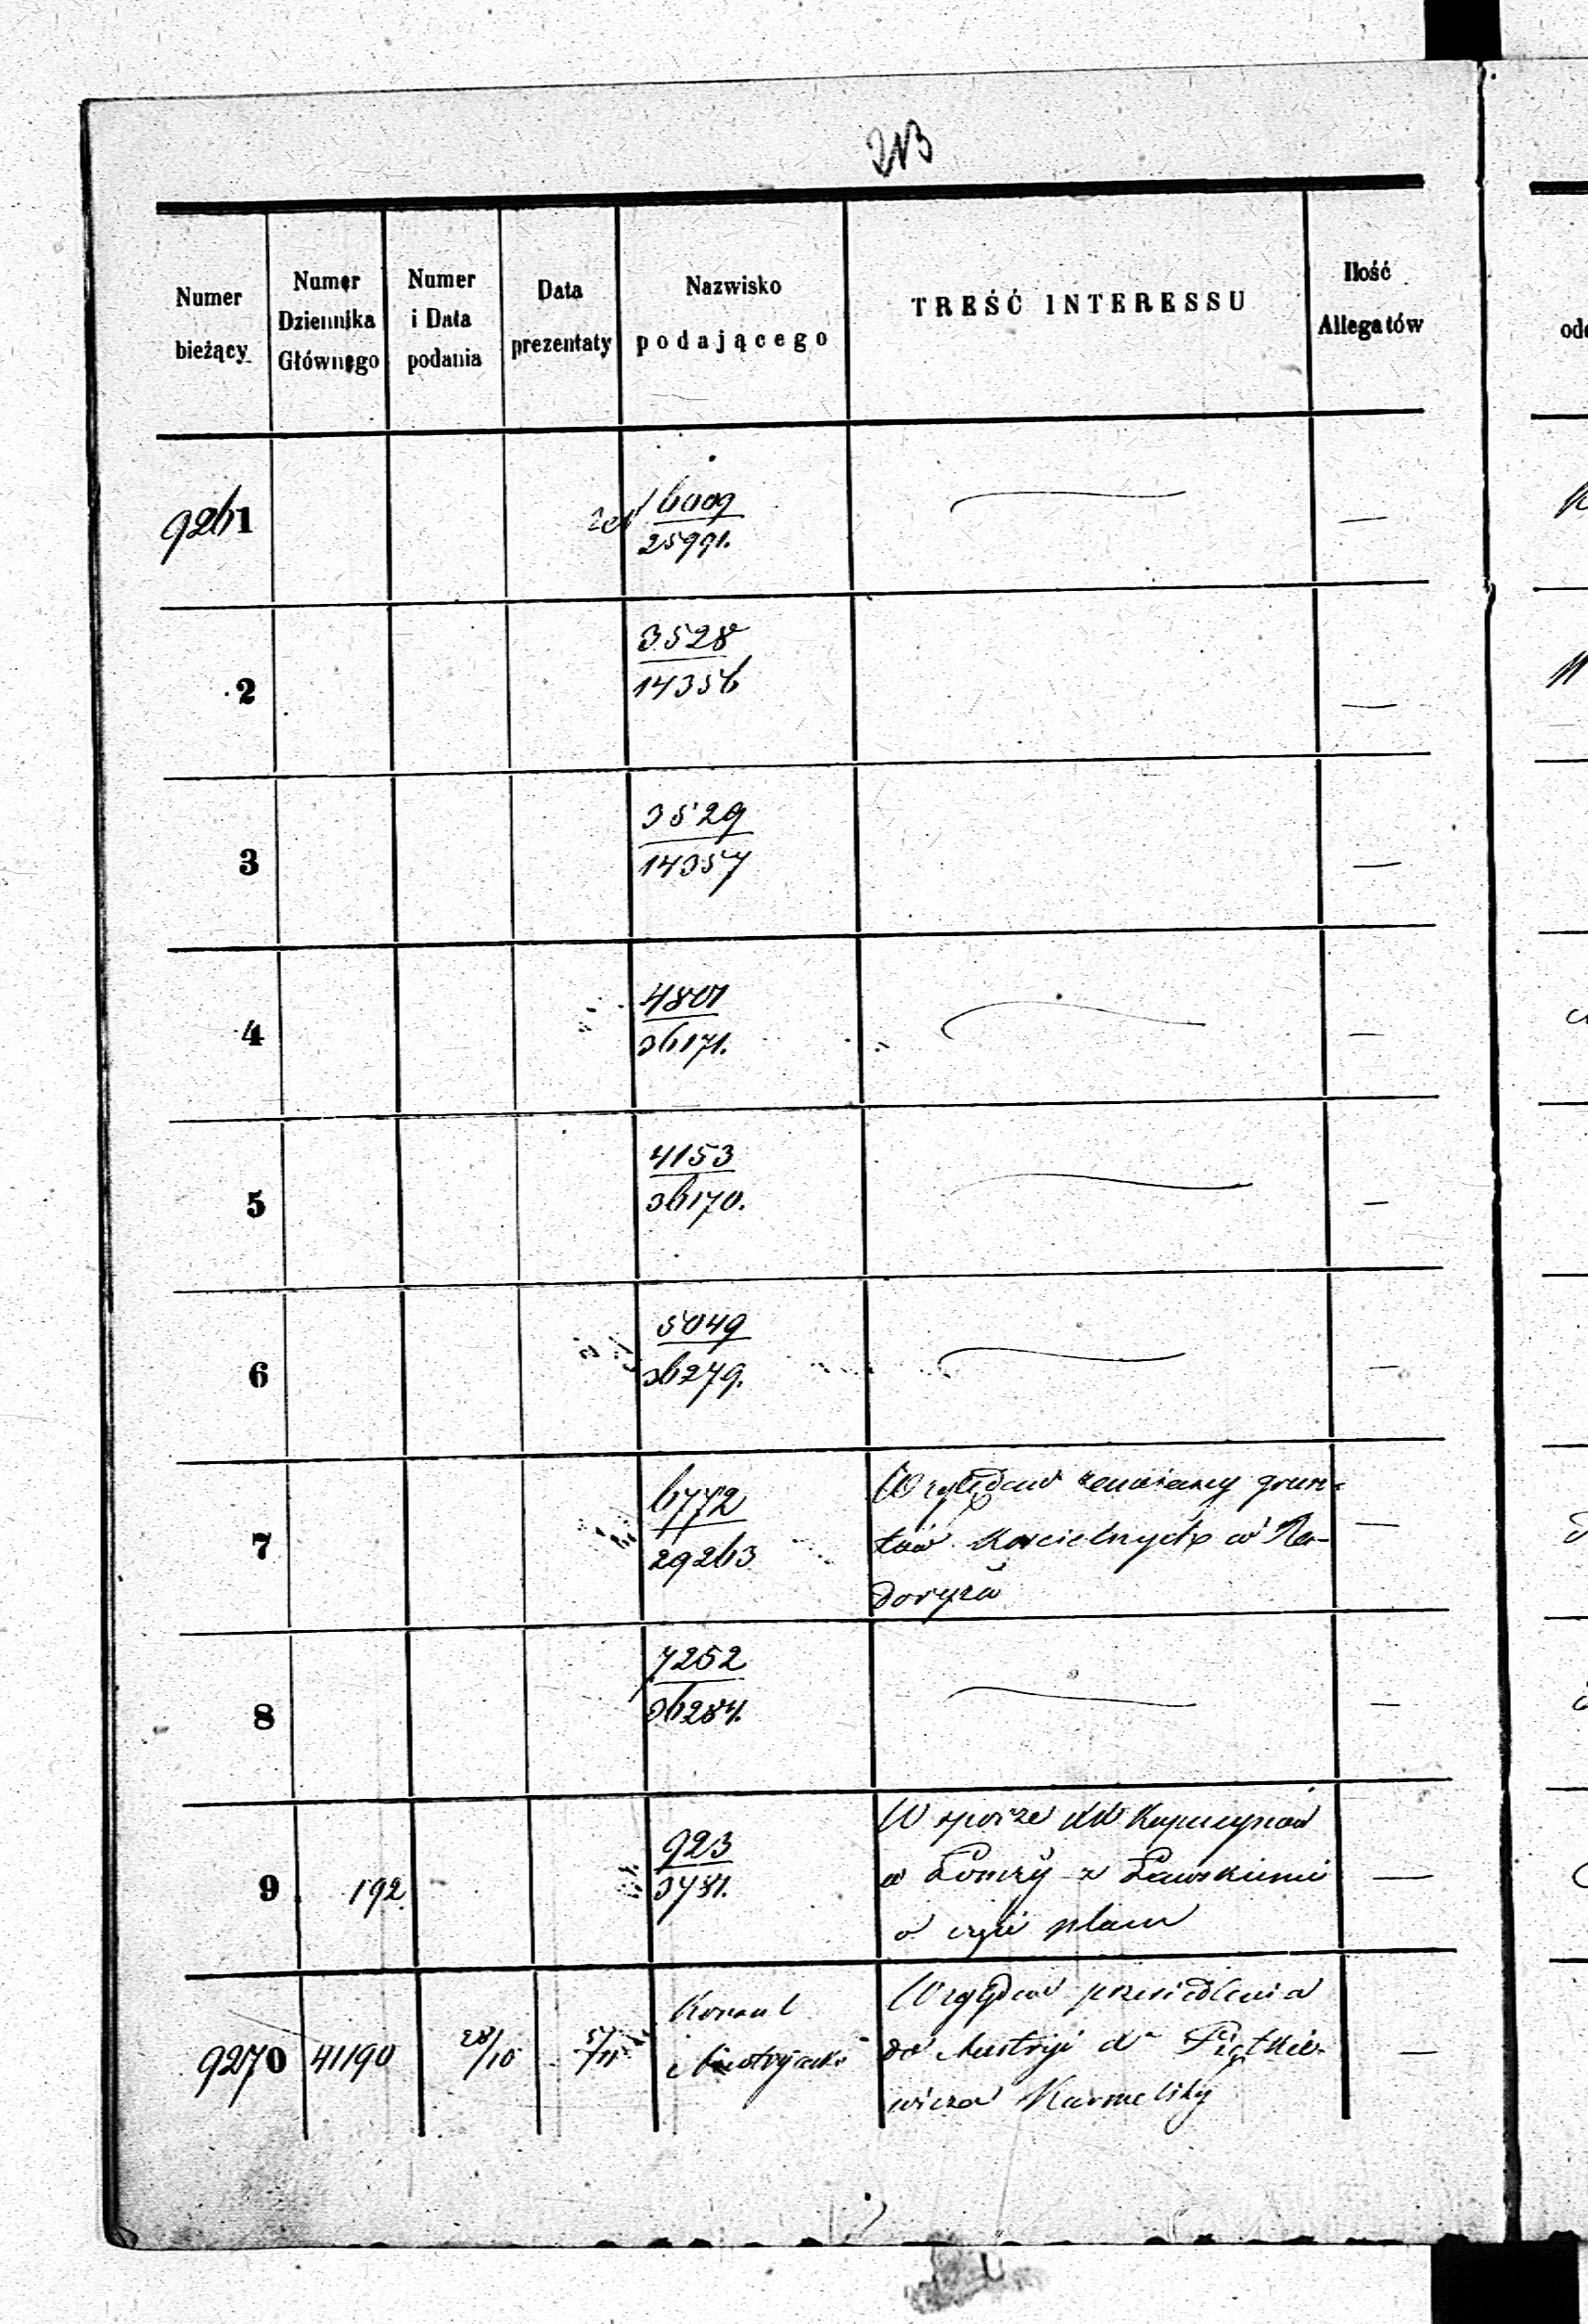 213
Numer bieżący
Numer Dziennika Głównego
Numer i Data podania
Data prezentaty
Nazwisko podającego
TREŚĆ INTERESSU
Ilość Allegatów
9261
6009
25991.
—
2
3528
14356
—
3
3529
14357
—
4
4801
36171.
—
5
4153
36170.
—
6
5049
36279.
—
7
6772
29263
Względem zamiany grun-
tów Kościelnych w Ra-
doryżu
—
8
7252
36284.
—
9
192
923
3781.
W sporze XX Kapucynów
w Łomży z
o placu
—
9270
41190
28/10
5/11
Konsul
Austryacki
Względem przesiedlenia
do Austryi Xa Piątkie-
wicza Karmelity
—